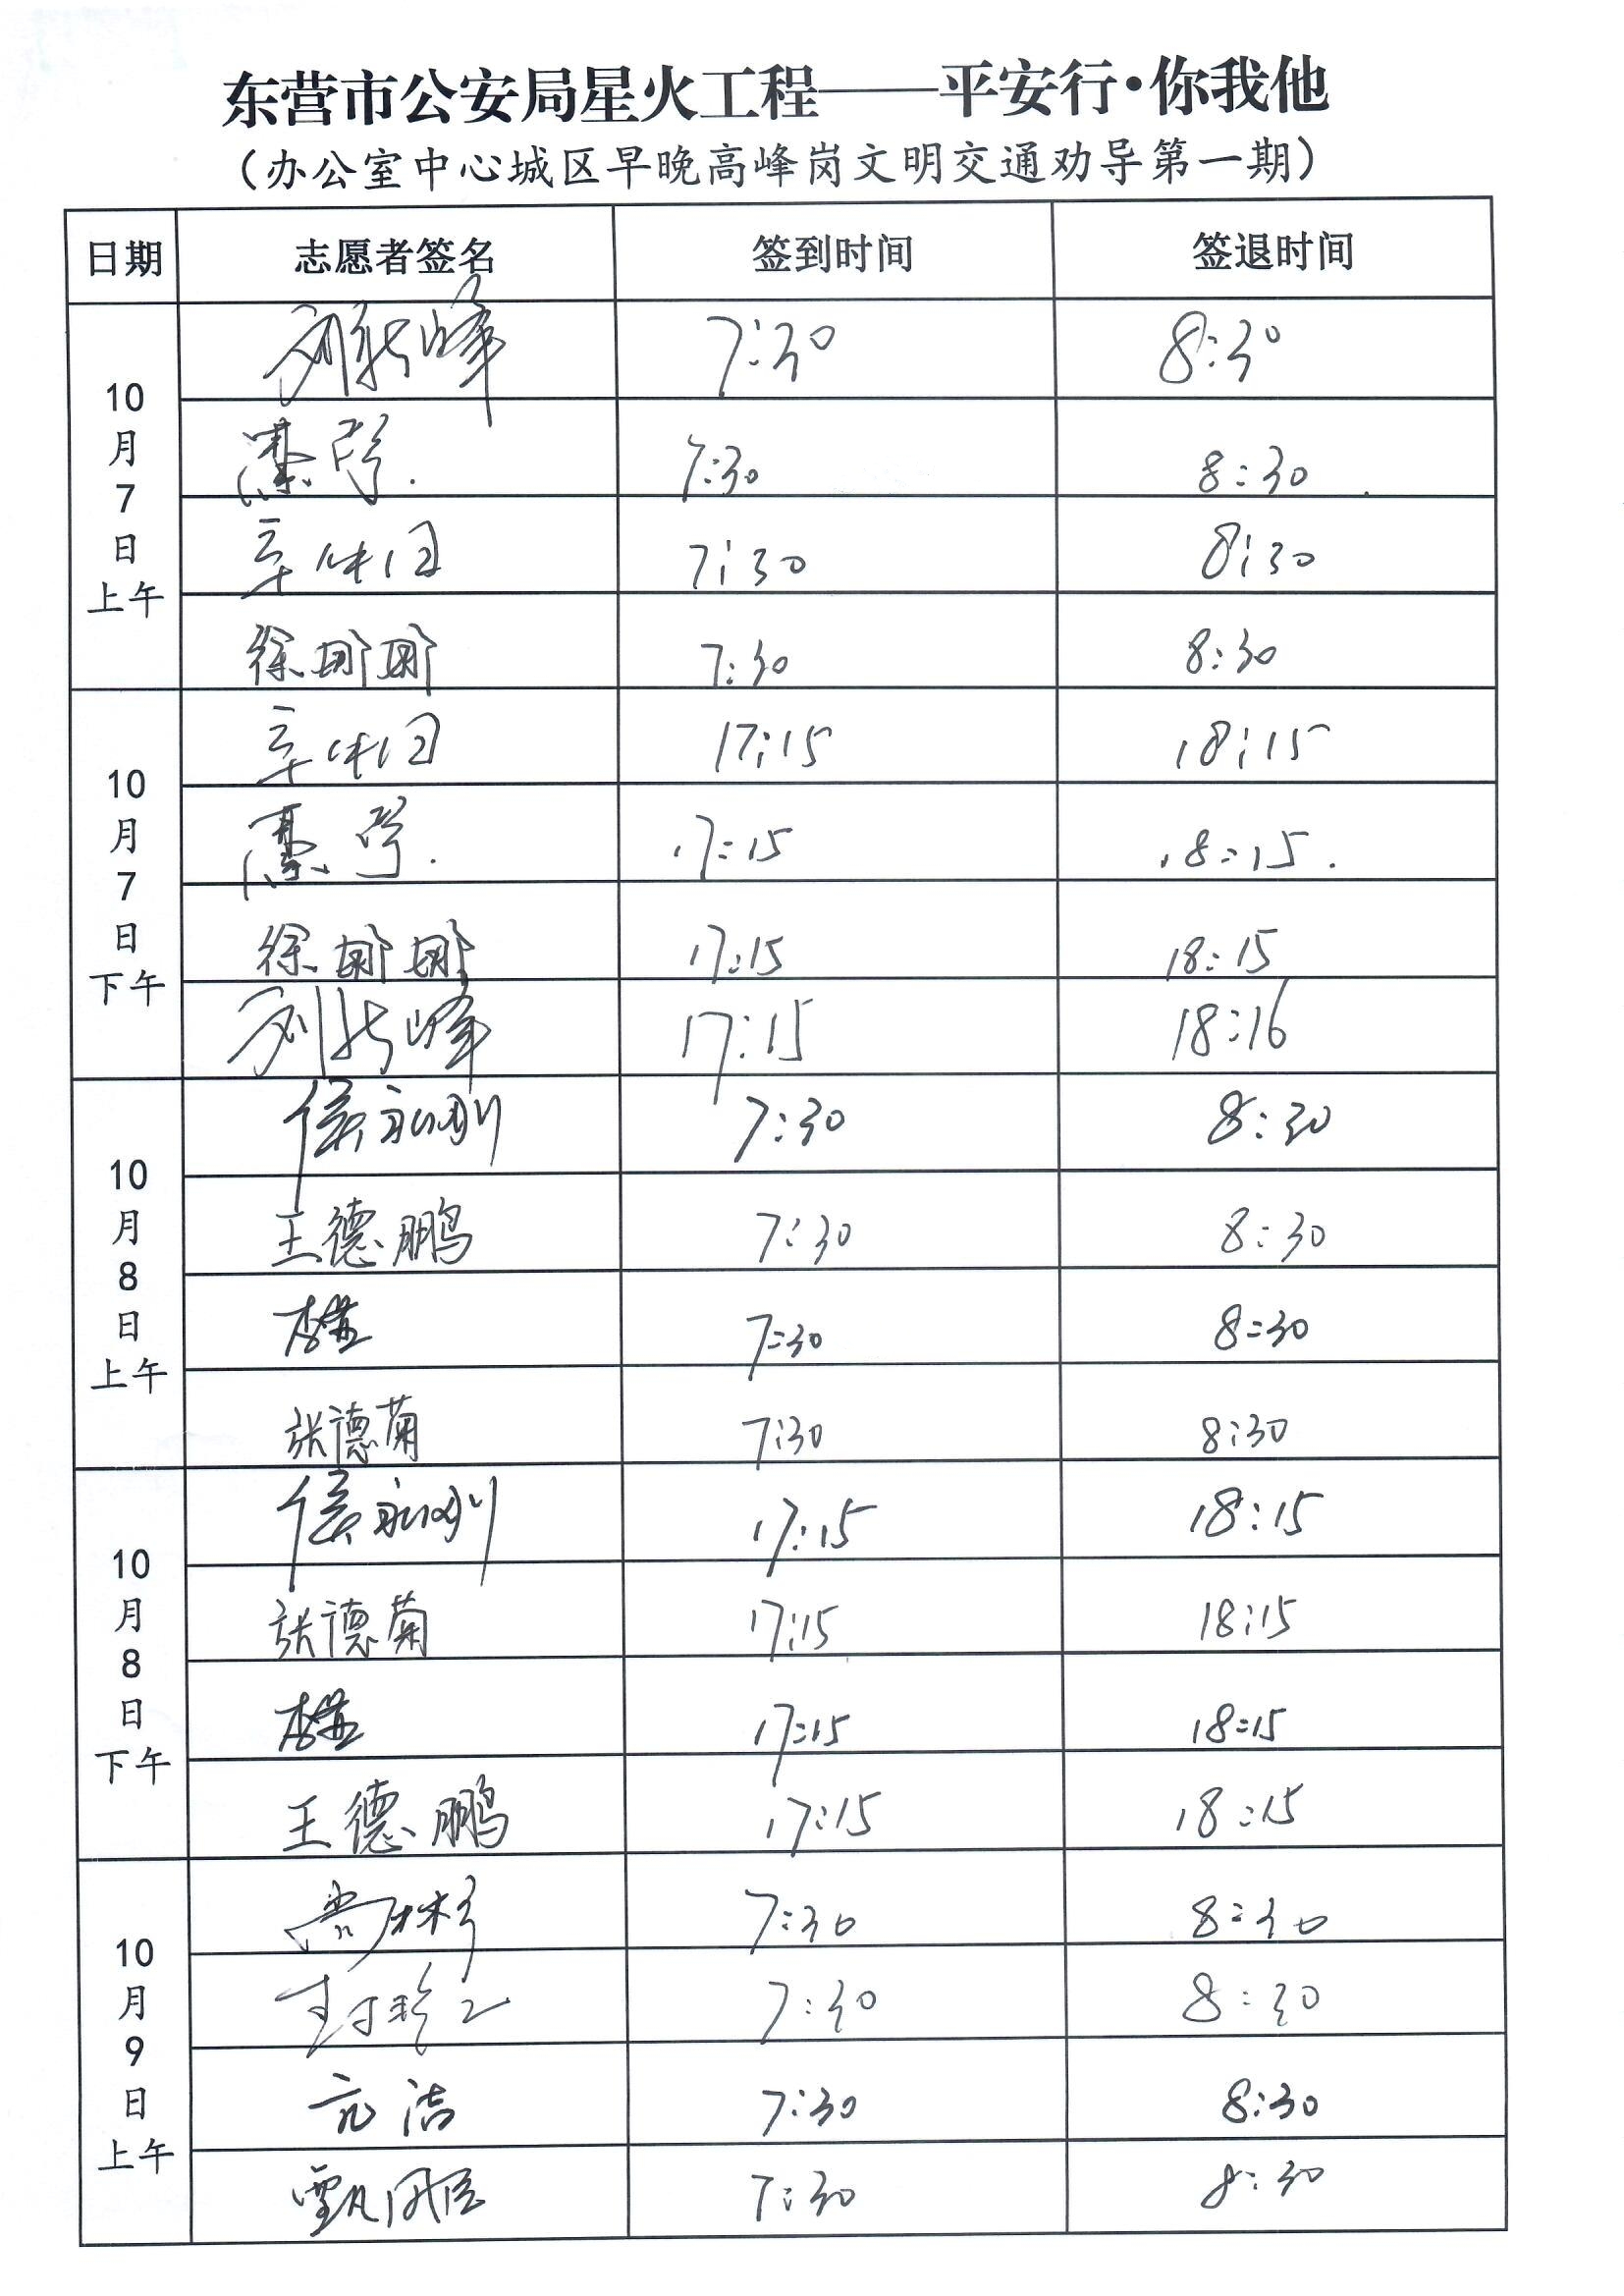 东营市公安局星火工程——平安行·你我他
（办公室中心城区早晚高峰岗文明交通劝导第一期）
日期 志愿者签名 签到时间 签退时间
10月7日上午
刘新峰 7:30 8:30
7:30 8:30
7:30 8:30
徐娜娜 7:30 8:30
10月7日下午
17:15 18:15
17:15 18:15
徐娜娜 17:15 18:15
刘新峰 17:15 18:16
10月8日上午
侯永刚 7:30 8:30
王德鹏 7:30 8:30
7:30 8:30
张德菊 7:30 8:30
10月8日下午
侯永刚 17:15 18:15
张德菊 17:15 18:15
17:15 18:15
王德鹏 17:15 18:15
10月9日上午
尚彬彬 7:30 8:30
7:30 8:30
亓洁 7:30 8:30
7:30 8:30